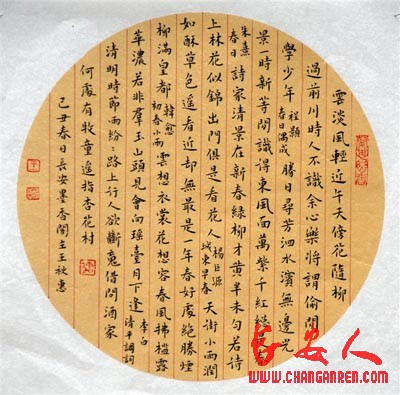 雲淡風輕近午天傍花隨柳
過前川時人不識余心樂將謂偷閒
學少年 程顥 春日偶成 勝日尋芳泗水濱無邊光
景一時新等閒識得東風面萬紫千紅總是春
朱熹 春日 詩家清景在新春綠柳才黃半未勻若待
上林花似錦出門俱是看花人 楊巨源 城東早春 天街小雨潤
如酥草色遥看近却無最是一年春好處絶勝煙
柳滿皇都 韓愈 初春小雨 雲想衣裳花想容春風拂檻露
華濃若非羣玉山頭見會向瑶臺月下逢 李白 清平調詞
清明時節雨紛〻路上行人欲斷魂借問酒家
何處有牧童遥指杏花村
己丑春日長安墨香閣主王秋惠
长安人
WWW.CHANGANREN.COM